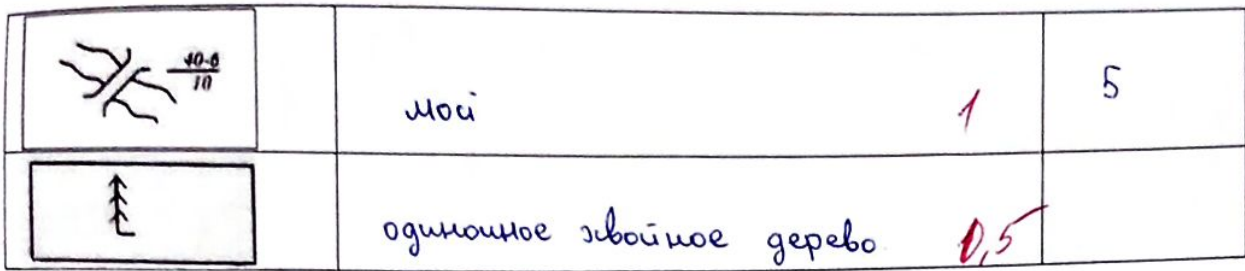 40-6
10
мост 1 5
одиночное хвойное дерево 0,5